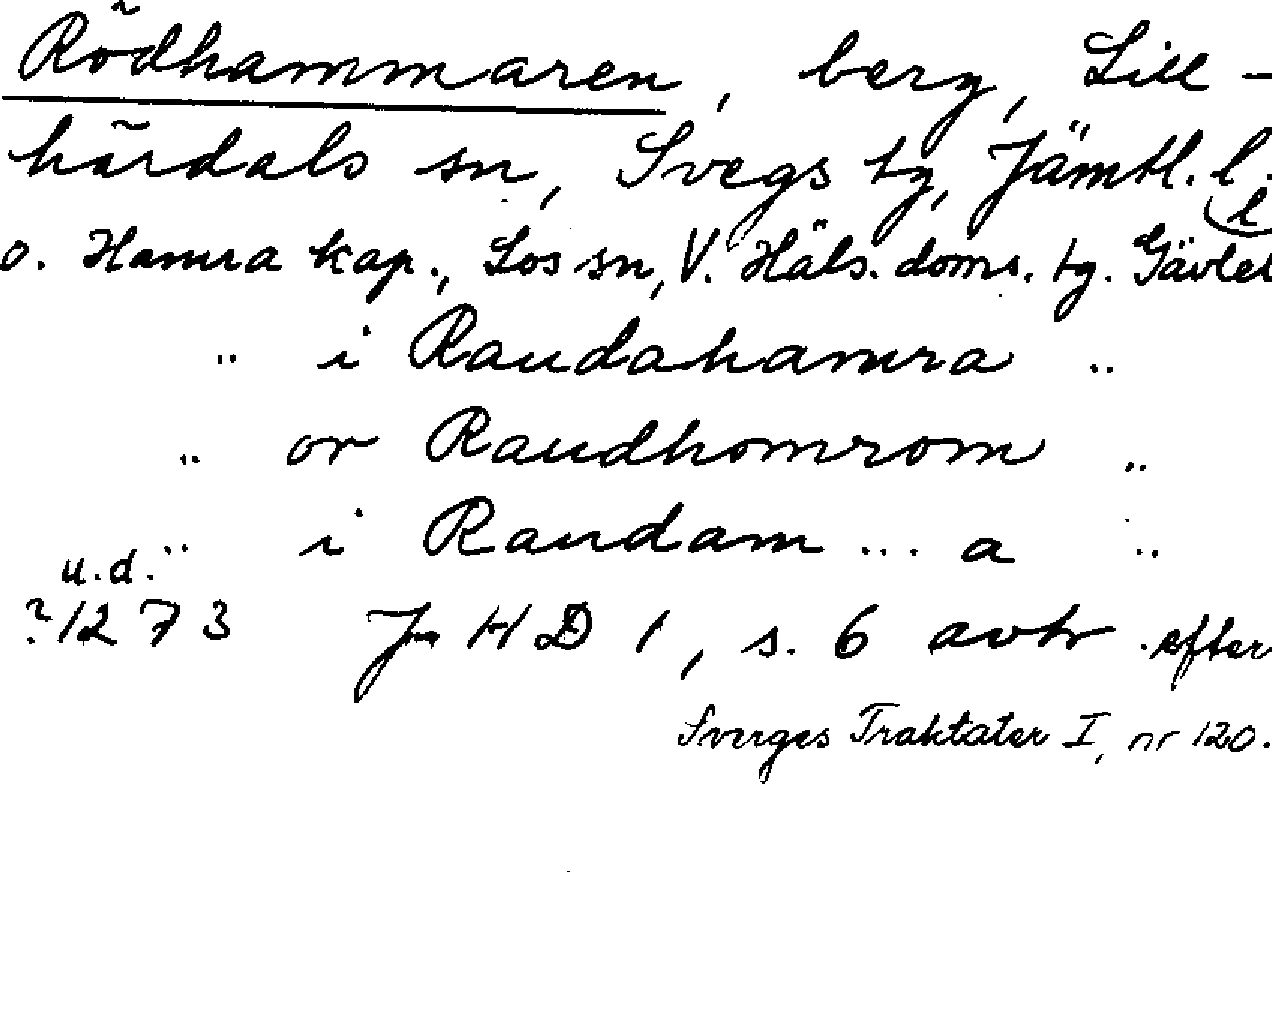 Rödhammaren, berg, Lill-
härdals sn, Svegs tg, Jämtl. l.
o. Hamra kap., Los sn, V. Häls. doms. tg. Gävleb l
" i Raudahamra "
" or Raudhomrom "
u.d. " i Raudam ... a "
?1273 Jm HD 1, s. 6 avtr efter
Sverges Traktater I, nr 120.